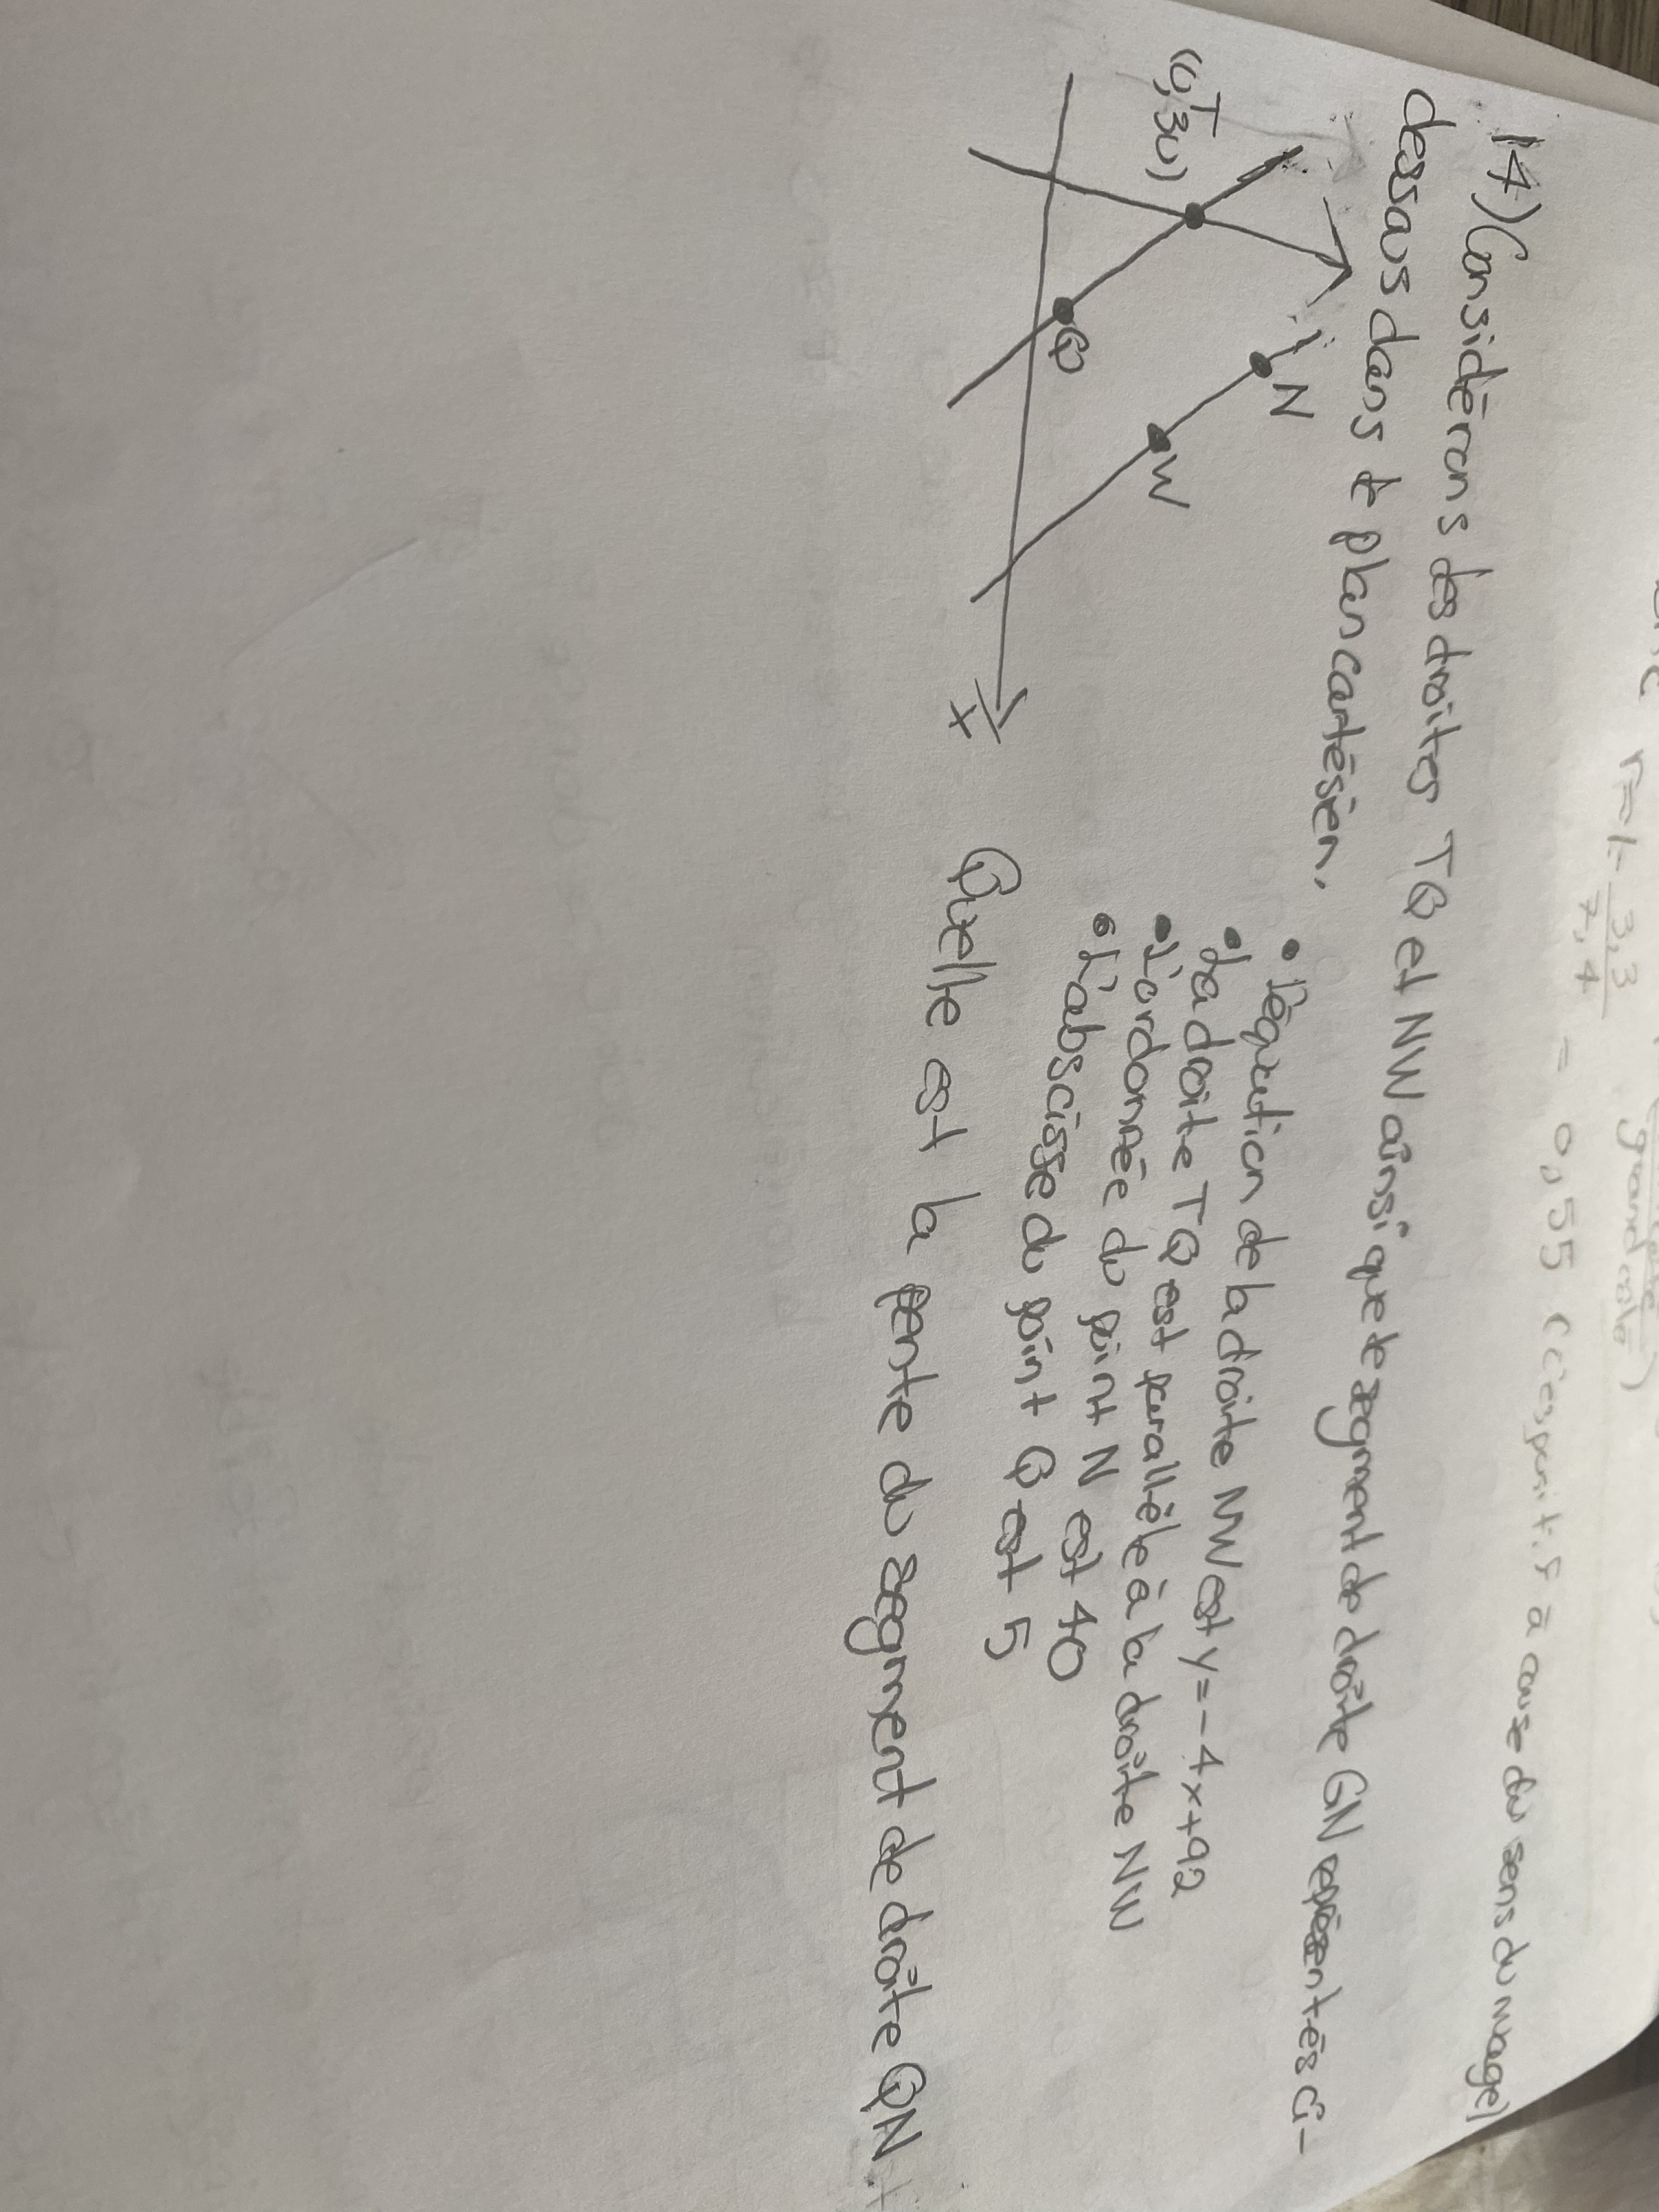 r=1-3,3/7,4 = 0,55 (c'est positif à cause du sens du nuage)
14) Considérons les droites TQ et NW ainsi que le segment de droite GN représentés ci-
dessous dans le plan cartésien.
• l'équation de la droite NW est y=-4x+92
• La droite TQ est parallèle à la droite NW
• L'ordonnée du point N est 40
• L'abscisse du point Q est 5
Quelle est la pente du segment de droite QN
T
(0,30)
N
Q
W
x